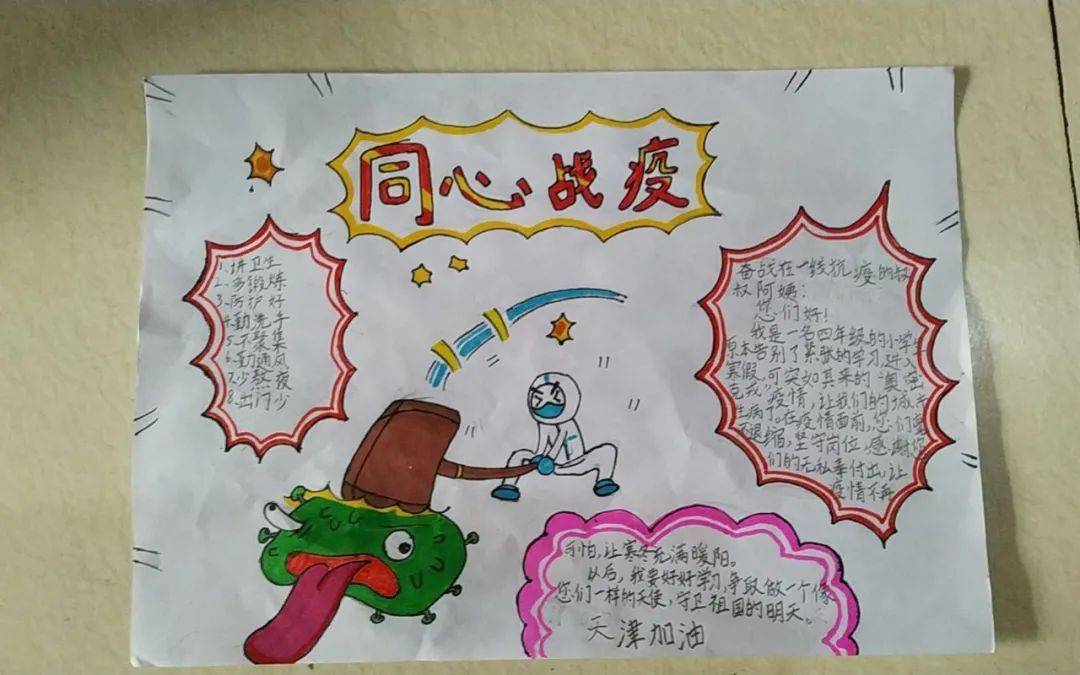 同心战疫
1、讲卫生
2、多锻炼
3、防护好
4、勤洗手
5、不聚集
6、勤通风
7、少熬夜
8、出门少
奋战在一线抗疫的叔
叔阿姨：
您们好！
我是一名四年级的小学生
原本告别了紧张的学习,进入
寒假,可突如其来的“奥密
克戎”疫情,让我们的城市
生病了。在疫情面前,您们
退缩,坚守岗位,感谢您
们的无私奉付出,让
疫情不再
可怕,让寒冬充满暖阳。
以后,我要好好学习,争取做一个像
您们一样的天使,守卫祖国的明天。
天津加油